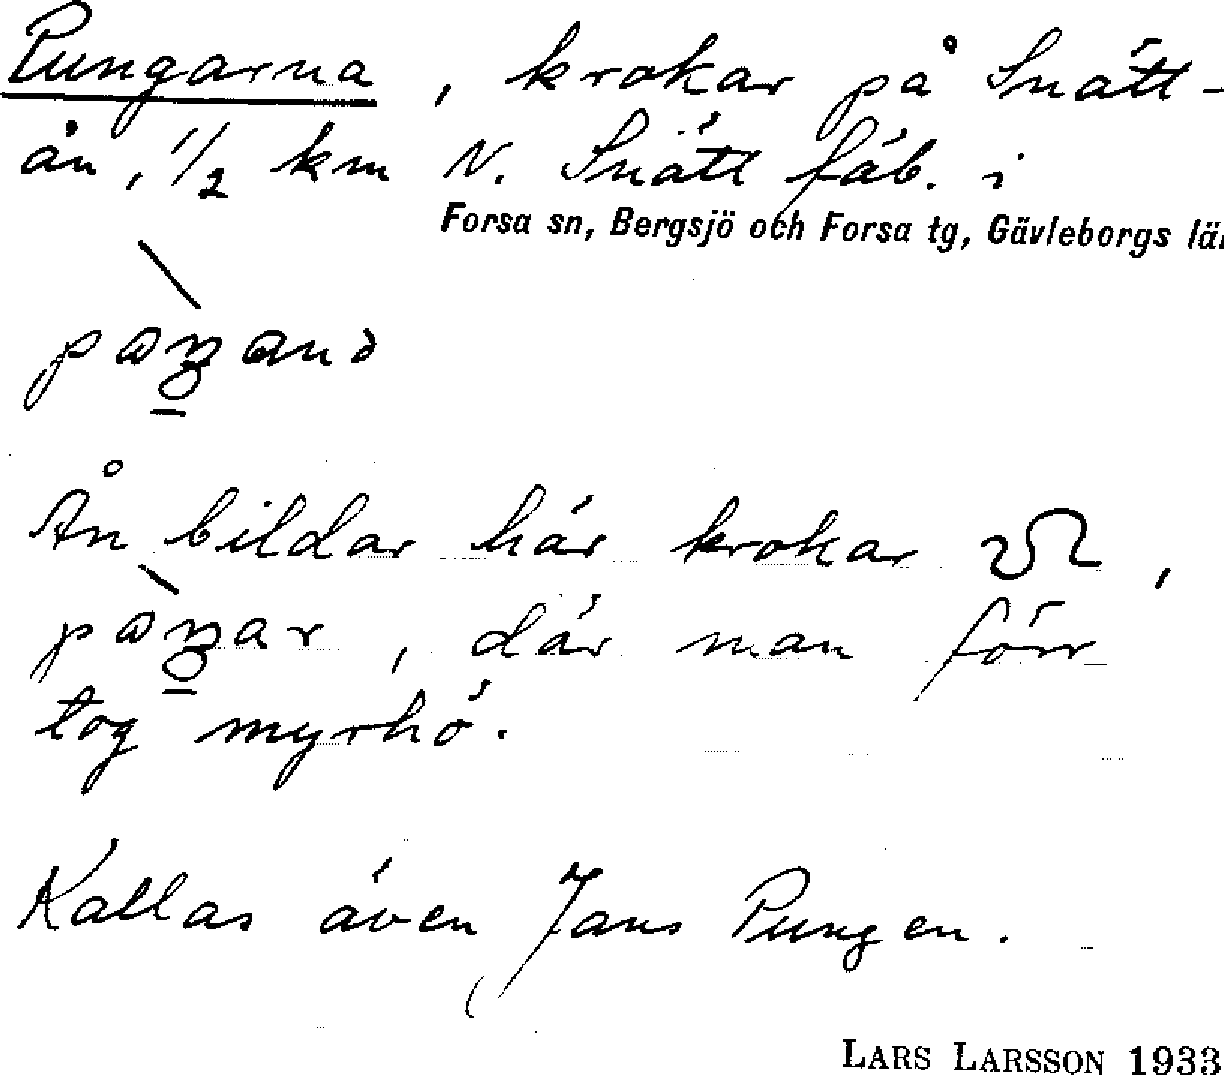 Pungarna, krokar på Snätt-
ån, 1/2 km N. Snätt fäb. i
Forsa sn, Bergsjö och Forsa tg, Gävleborgs län
Ån bildar här krokar
, där man förr
tog myrhö.
Kallas även Jans Pungen.
LARS LARSSON 1933